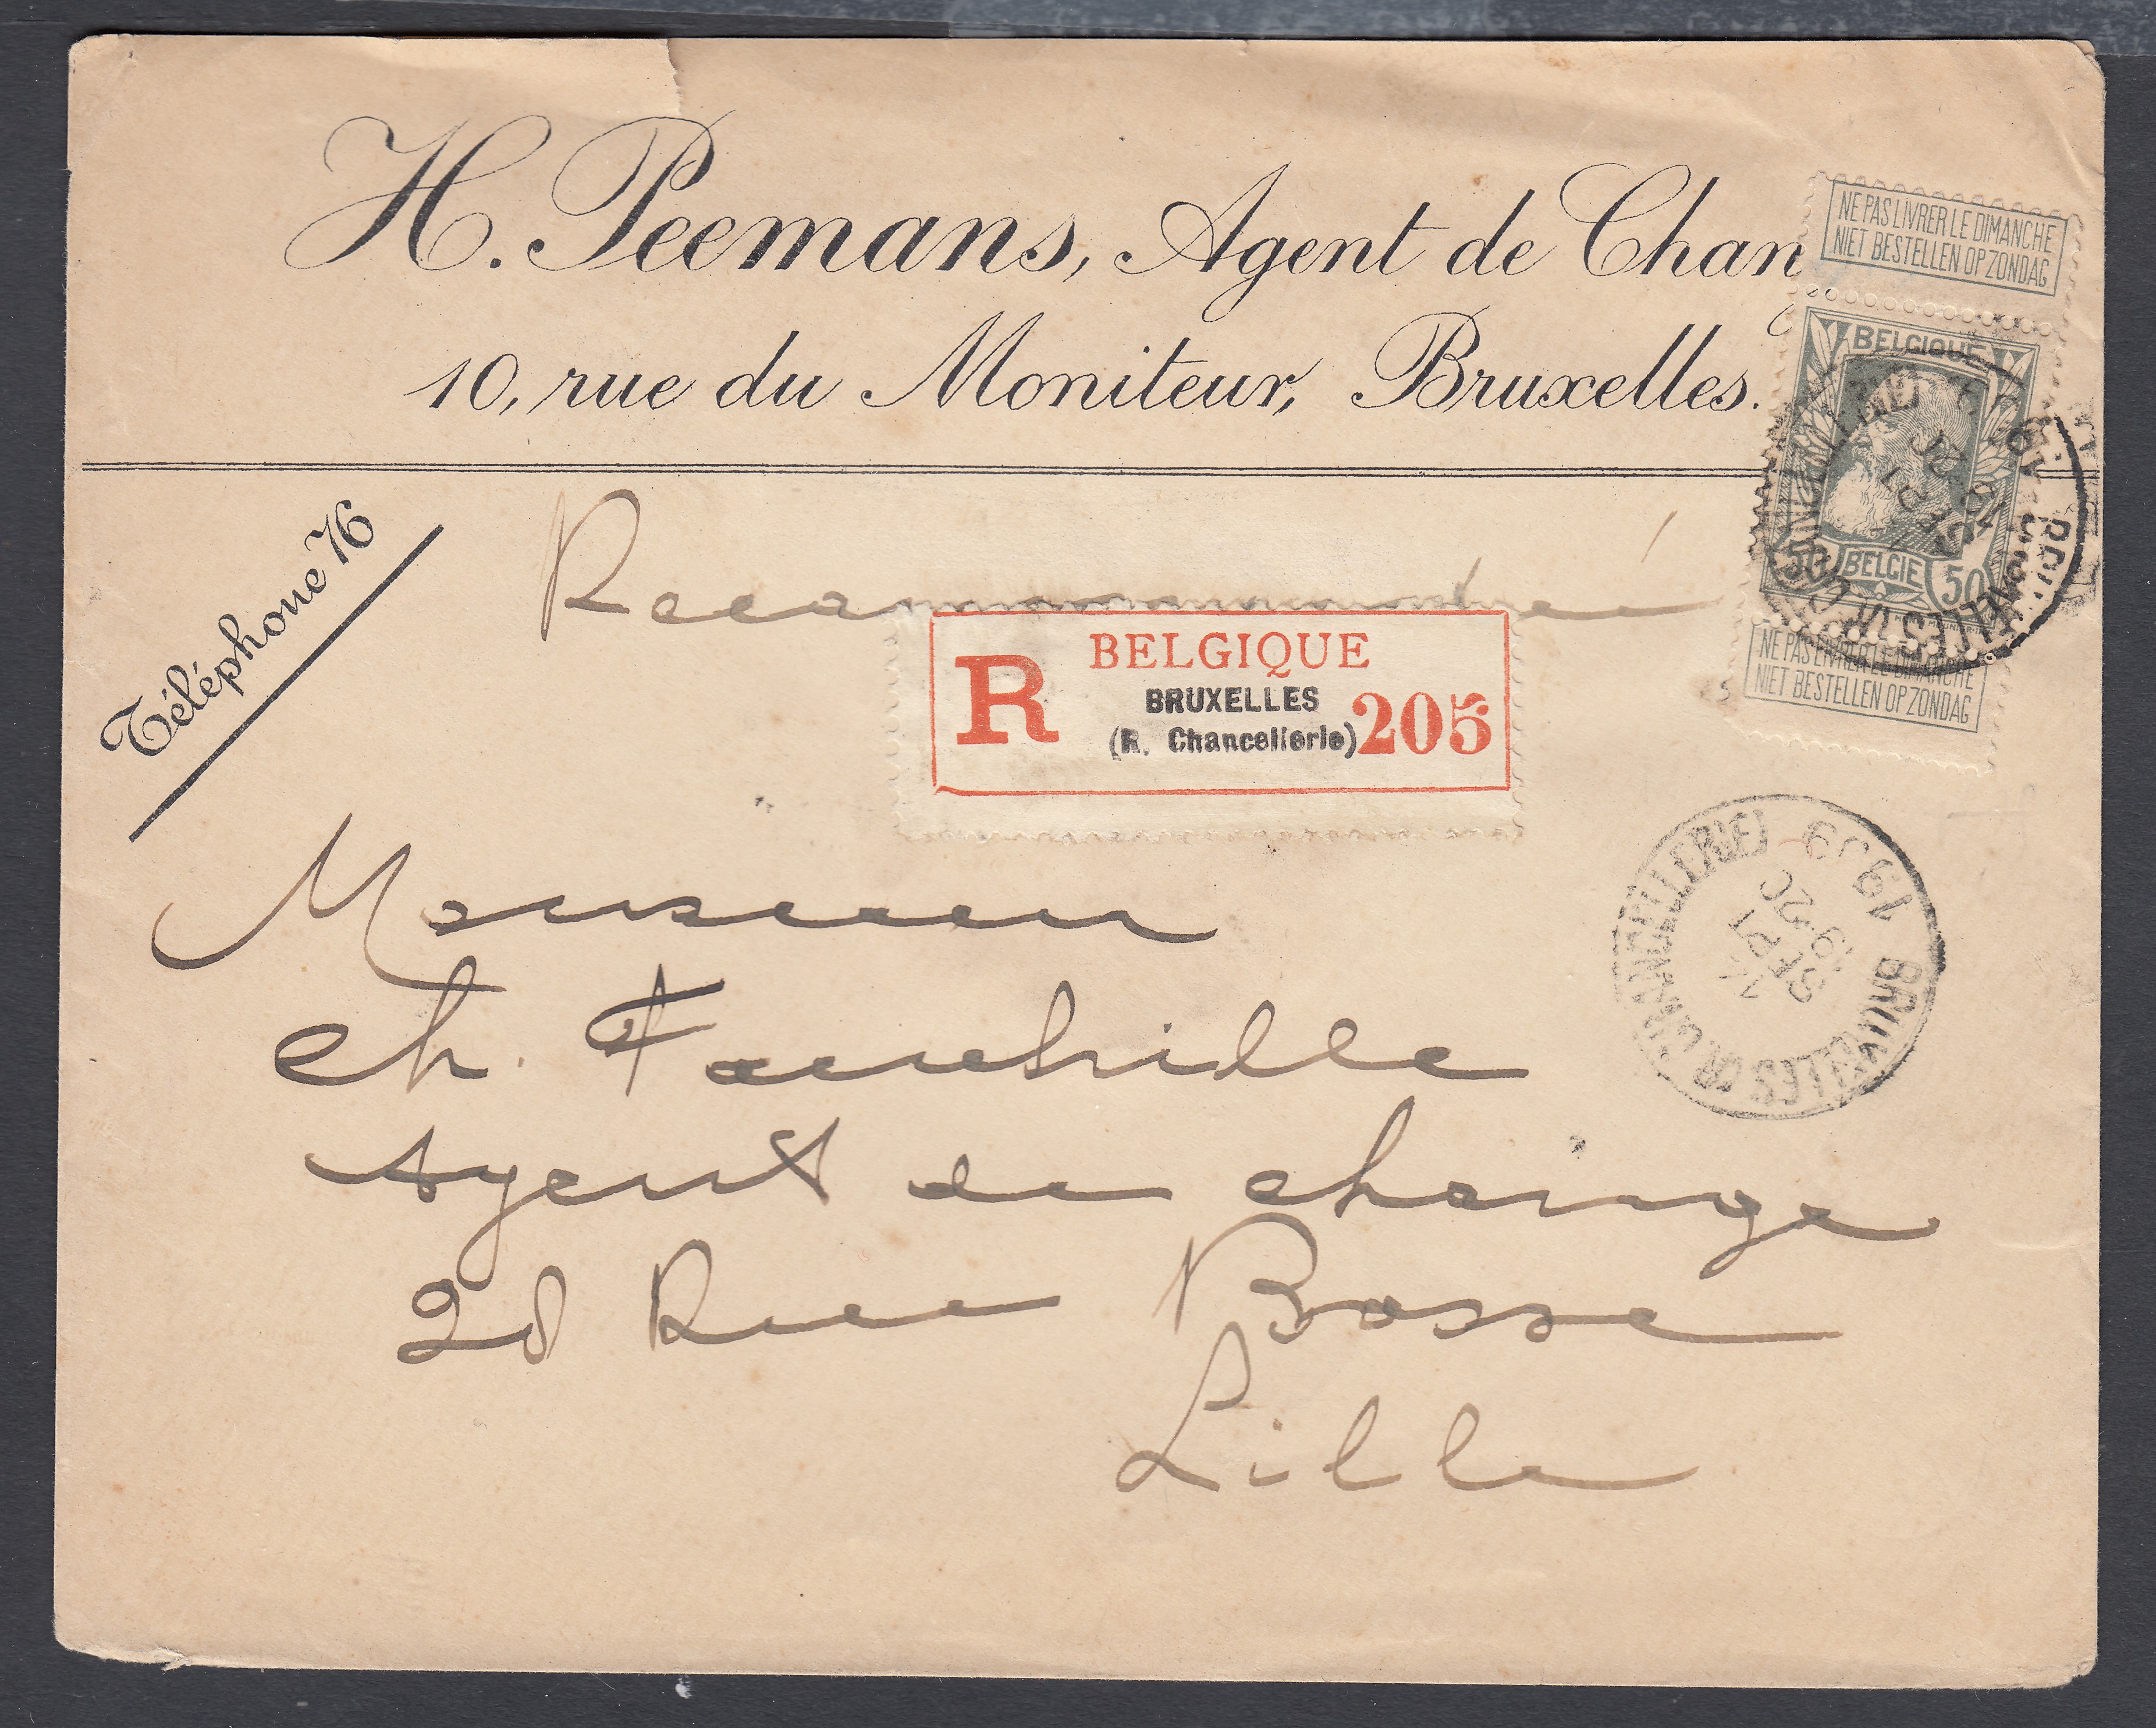 H. Peemans, Agent de Chang
10, rue du Moniteur, Bruxelles.
NE PAS LIVRER LE DIMANCHE
NIET BESTELLEN OP ZONDAG
BELGIQUE
50 BELGIE 50
NE PAS LIVRER LE DIMANCHE
NIET BESTELLEN OP ZONDAG
Téléphone 76
BELGIQUE
R
BRUXELLES
(R. Chancellerie)
205
BRUXELLES (R. CHANCELLERIE)
14
SEPT
19-20
1909
Monsieur
Ch. Fauchille
Agent de change
28 Rue Basse
Lille